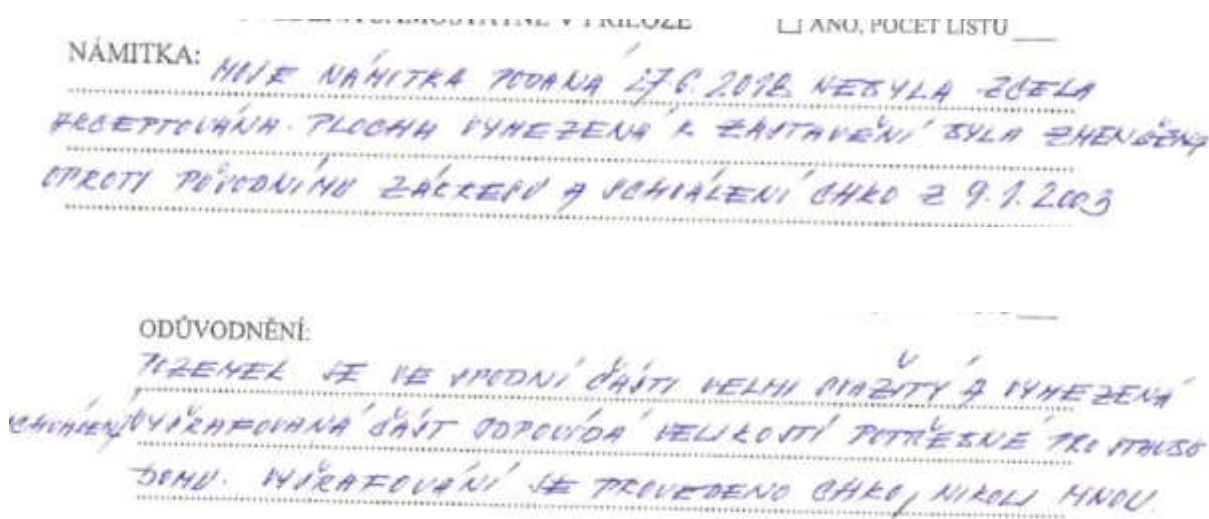 SAMOSTATNĚ V PŘÍLOZE ☐ ANO, POČET LISTŮ ___
NÁMITKA: MOJE NÁMITKA PODANÁ 27.6.2018 NEBYLA ZCELA
AKCEPTOVÁNA. PLOCHA VYMEZENÁ K ZASTAVĚNÍ BYLA ZMENŠENA
OPROTI PŮVODNÍMU ZÁKRESU A SCHVÁLENÍ CHKO Z 9.1.2003
ODŮVODNĚNÍ:
POZEMEK JE VE SPODNÍ ČÁSTI VELMI SVAŽITÝ A VYMEZENÁ
VYŠRAFOVANÁ ČÁST ODPOVÍDÁ VELIKOSTÍ POTŘEBNÉ PRO STAVBU
DOMU. VYŠRAFOVÁNÍ JE PROVEDENO CHKO, NIKOLI MNOU.